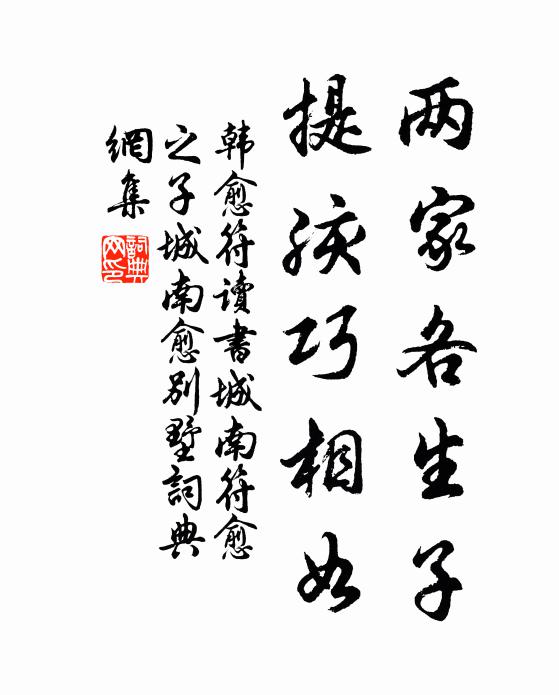 两家各生子
提孩巧相如
韩愈符读书城南符愈
之子城南愈别墅词典
網集
詞典網印